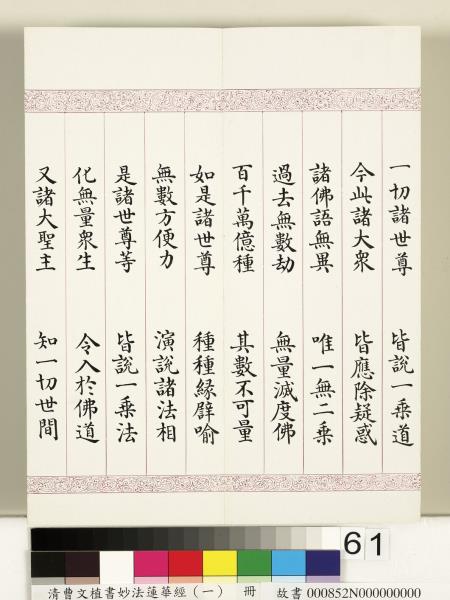 一切諸世尊　皆說一乘道
今此諸大衆　皆應除疑惑
諸佛語無異　唯一無二乘
過去無數劫　無量滅度佛
百千萬億種　其數不可量
如是諸世尊　種種緣譬喻
無數方便力　演說諸法相
是諸世尊等　皆說一乘法
化無量衆生　令入於佛道
又諸大聖主　知一切世間
61
清曹文植書妙法蓮華經（一）　冊　故書 000852N000000000